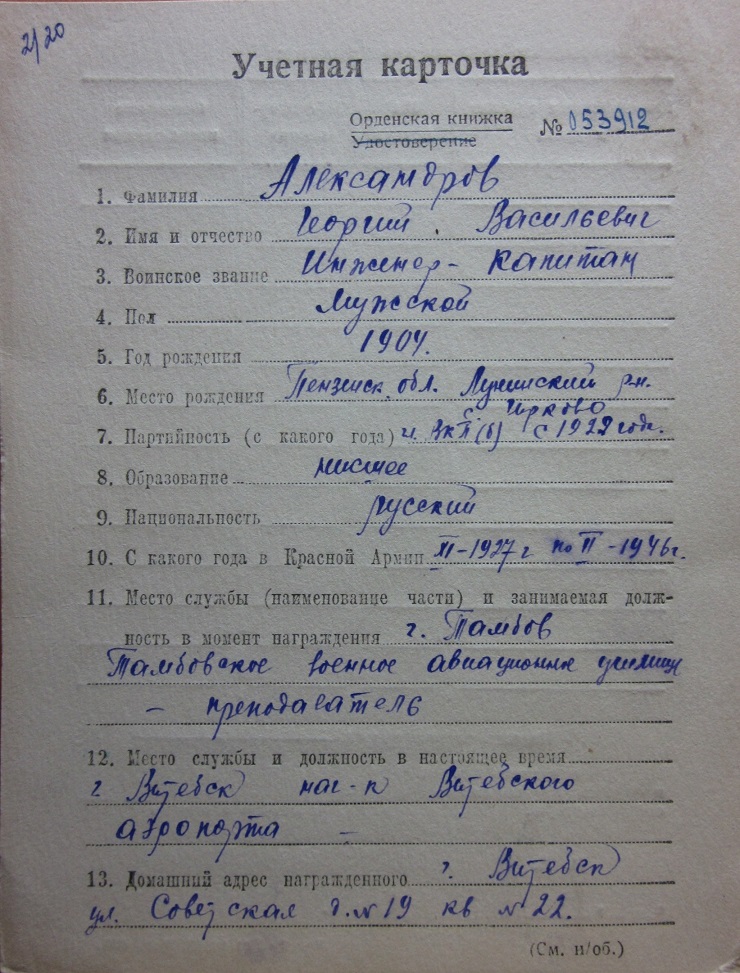 2/20
Учетная карточка
Орденская книжка
Удостоверение
№ 053912
1. Фамилия Александров
2. Имя и отчество Георгий Васильевич
3. Воинское звание Инженер-капитан
4. Пол Мужской
5. Год рождения 1904.
6. Место рождения Пензенск. обл. Лунинский р-н.
с.
7. Партийность (с какого года) ч. ВКП(б) с 1929 года.
8. Образование низшее
9. Национальность русский
10. С какого года в Красной Армии XI-1927 г по II-1946 г.
11. Место службы (наименование части) и занимаемая долж-
ность в момент награждения г. Тамбов
Тамбовское военное авиационное училище
— преподаватель
12. Место службы и должность в настоящее время
г Витебск нач-к Витебского
аэропорта —
13. Домашний адрес награжденного г. Витебск
ул. Советская д. № 19 кв № 22.
(См. н/об.)